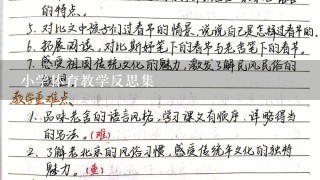 的特点。
5. 对比文中孩子们过春节的情景,说说自己是怎样过春节的。
6. 拓展阅读,对比斯好笔下的春节与老舍笔下的春节。
7. 感受祖国传统文化的魅力,激发了解民风民俗的
小学体育教学反思集
教学重难点
1. 品味老舍的语言风格,学习课文有顺序,详略得当
的写法。(难)
2. 了解老北京的风俗习惯,感受传统年文化的独特
魅力。(重)